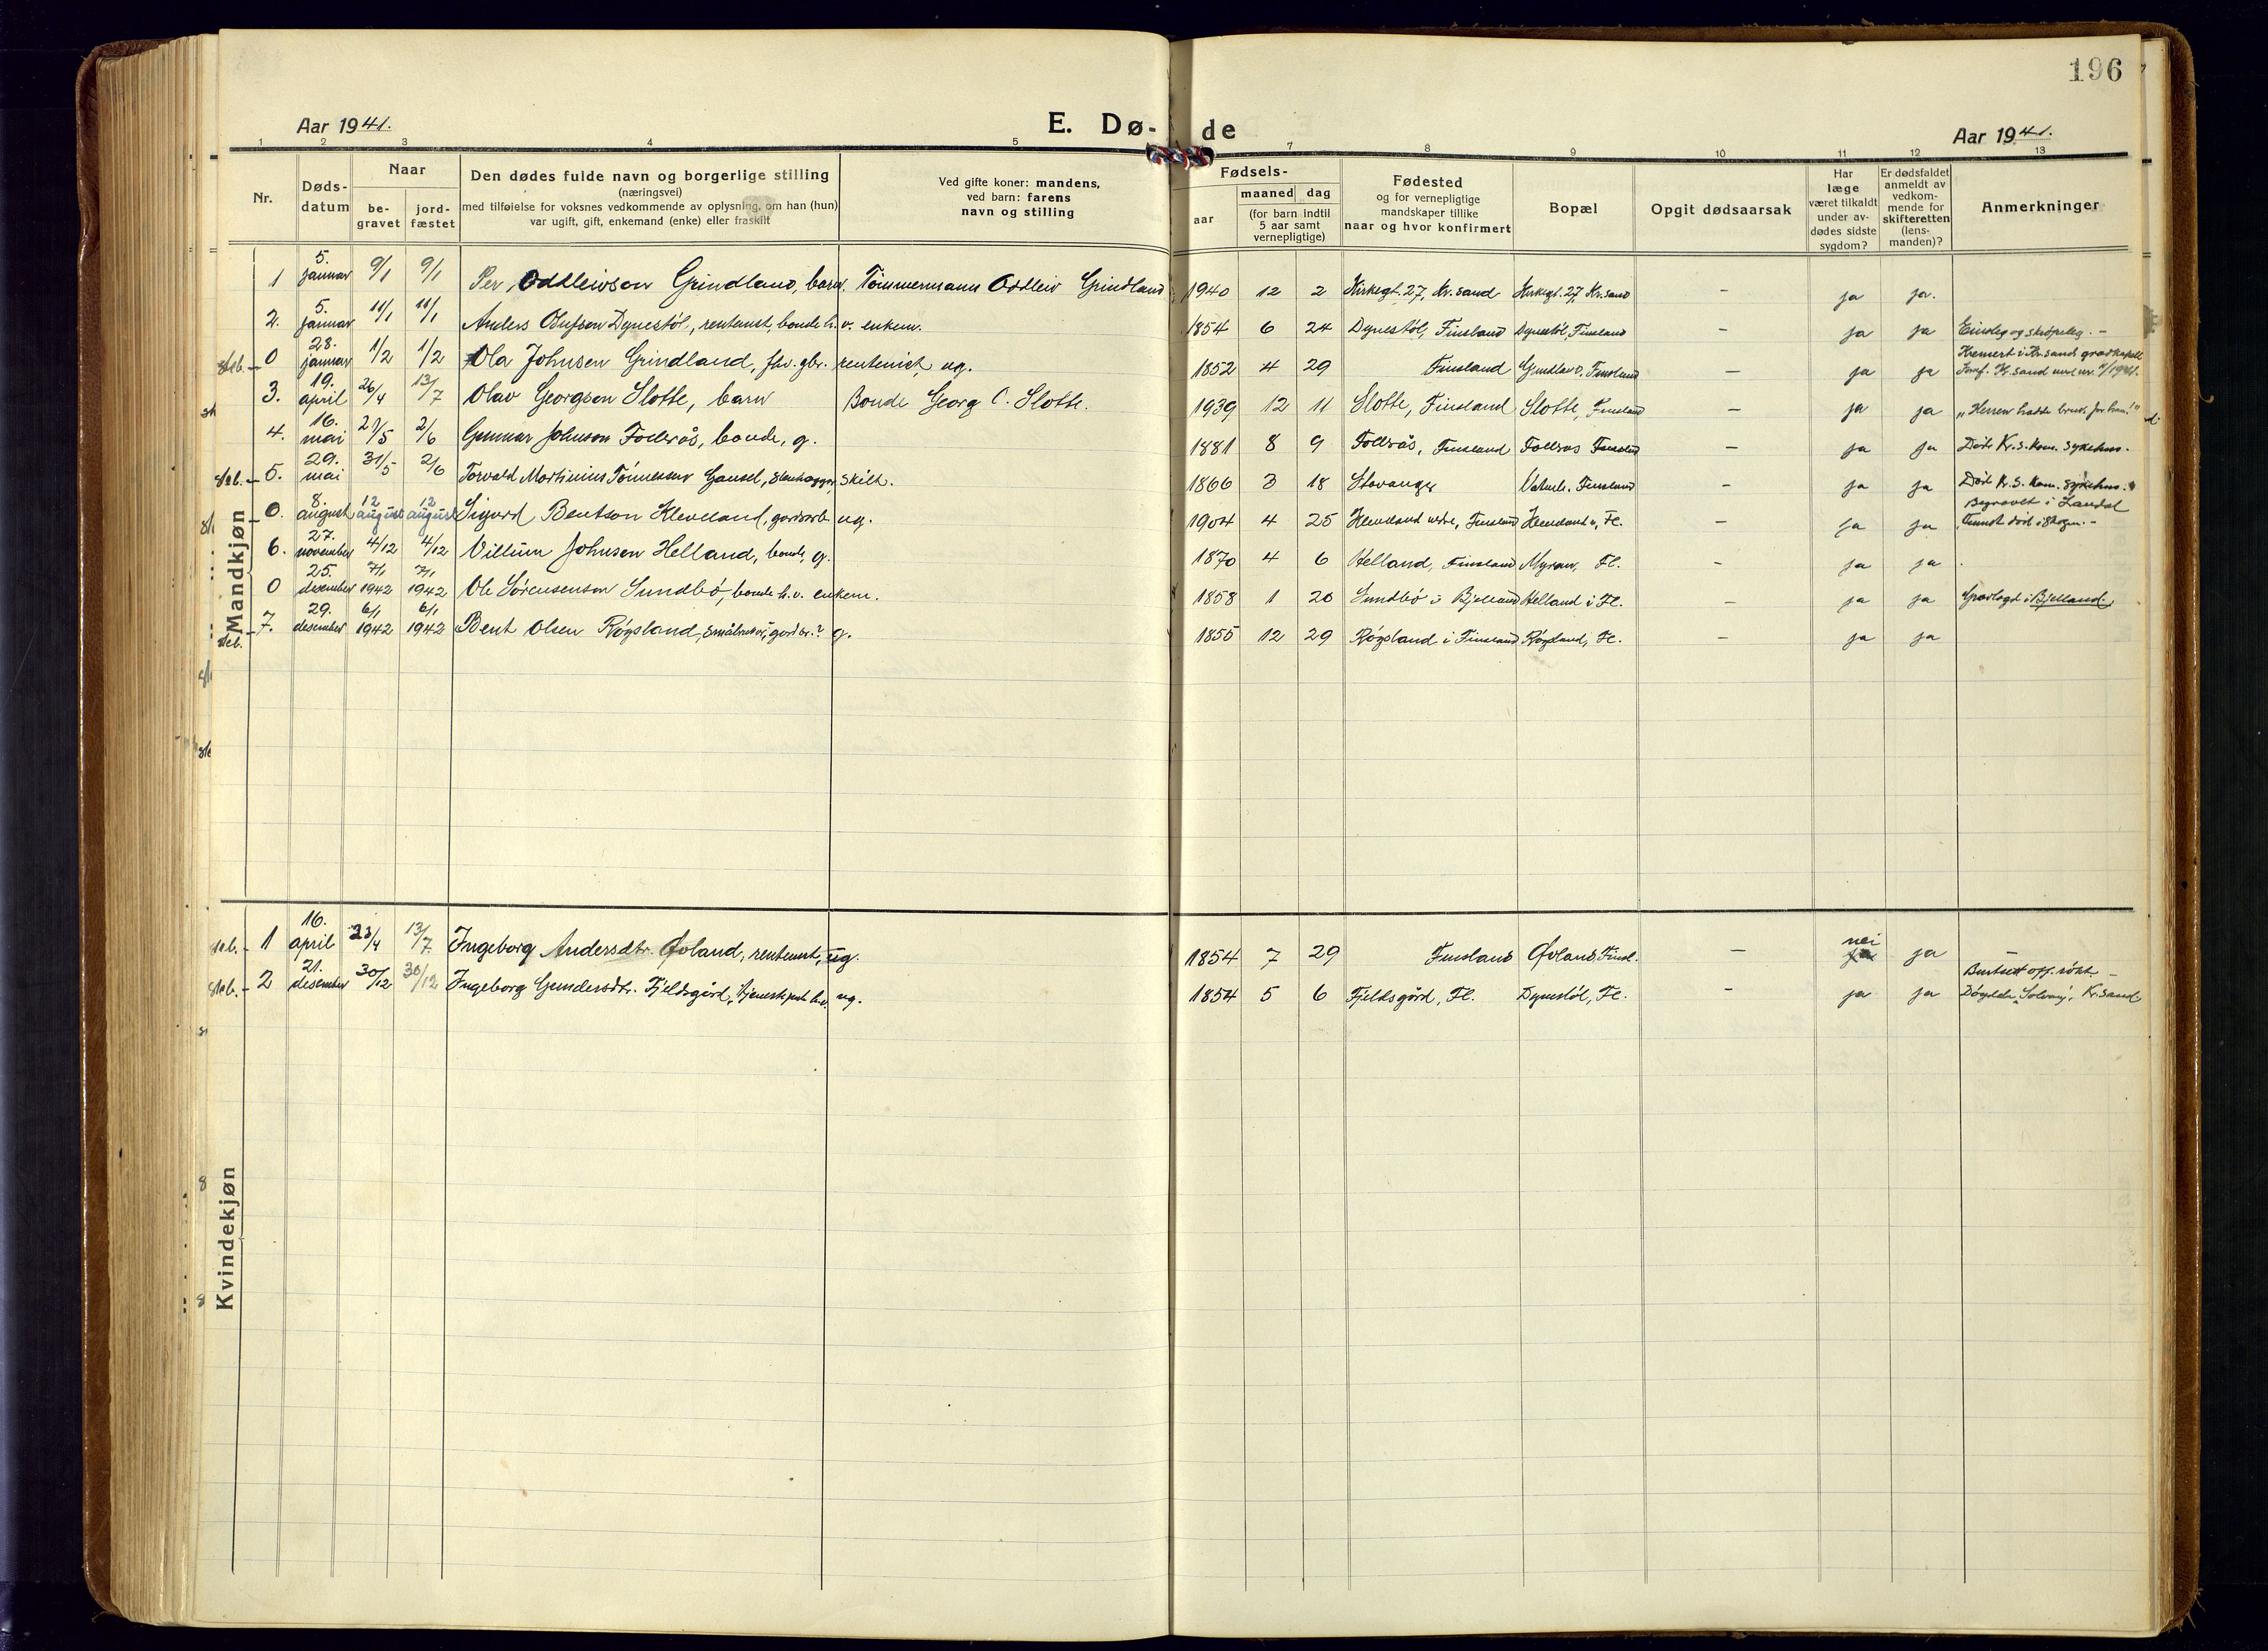 196
Aar 1941. E. Dø- de Aar 1941.
1 2 3 4 5 7 8 9 10 11 12 13
Nr.
Døds-
datum
Naar
be-
gravet
jord-
fæstet
Den dødes fulde navn og borgerlige stilling
(næringsvei)
med tilføielse for voksnes vedkommende av oplysning, om han (hun)
var ugift, gift, enkemand (enke) eller fraskilt
Ved gifte koner: mandens,
ved barn: farens
navn og stilling
Fødsels-
aar
maaned dag
(for barn indtil
5 aar samt
vernepligtige)
Fødested
og for vernepligtige
mandskaper tillike
naar og hvor konfirmert
Bopæl
Opgit dødsaarsak
Har
læge
været tilkaldt
under av-
dødes sidste
sygdom?
Er dødsfaldet
anmeldt av
vedkom-
mende for
skifteretten
(lens-
manden)?
Anmerkninger
Mandkjøn
1 5. januar 9/1 9/1 Per Oddleivson Grindland, barn. Tømmermann Oddleiv Grindland 1940 12 2 Kirkegt. 27, Kr.sand Kirkegt. 27 Kr.sand — ja ja.
2. 5. januar 11/1 11/1 Anders Olufson Dynestøl, rentenist, bonde h.v. enkem. 1854 6 24 Dynestøl, Finsland Dynestøl, Finsland — ja ja
0 28. januar 1/2 1/2 Ola Johnsen Grindland, fhv. gbr. rentenist, ug. 1852 4 29 Finsland Grindland, Finsland — ja ja Kremert i Kr.sands gravkapell
3. 19. april 26/4 13/7 Olav Georgson Slotte, barn Bonde Georg O. Slotte. 1939 12 11 Slotte, Finsland Slotte, Finsland — ja ja „Herren hadde bruk for ham!"
4. 16. mai 21/5 2/6 Gunnar Johnson Follerås, bonde, g. 1881 8 9 Follerås, Finsland Follerås Finsland — ja ja Død K.S. kom. sykehus.
5. 29. mai 31/5 2/6 Torvald Martinius Tønnessen Gausel, stenhogger, skilt. 1866 3 18 Stavanger Finsland — ja ja Død K.S. kom. sykehus.
Begravet i Landal
0. 8. august 12 august 12 august Sigurd Bentson Kleveland, gardsarb. ug. 1904 4 25 Kleveland nedre, Finsland Kleveland n, Fl. — ja ja Funnet død i skogen. —
6. 27. november 4/12 4/12 Villum Johnson Helland, bonde, g. 1870 4 6 Helland, Finsland Myran, Fl. - ja ja
0 25. desember 7/1 1942 7/1 1942 Ole Sørensenson Sundbø, bonde h.v. enkem. 1858 1 20 Sundbø i Bjelland Helland i Fl. — ja ja Gravlagd i Bjelland.
7. 29. desember 6/1 1942 6/1 1942 Bent Olsen Røysland, g. 1855 12 29 Røysland i Finsland Røysland, Fl. — ja ja
Kvindekjøn
1 16. april 23/4 13/7 Ingeborg Andersdtr. Øvland, rentenist, ug. 1854 7 29 Finsland Øvland, Finsl. — nei ja —
2 21. desember 30/12 30/12 Ingeborg Gundersdtr. Fjeldsgård, tjenestejente h.v. ug. 1854 5 6 Fjeldsgård, Fl. Dynestøl, Fl. - ja ja „Solvang", Kr.sand